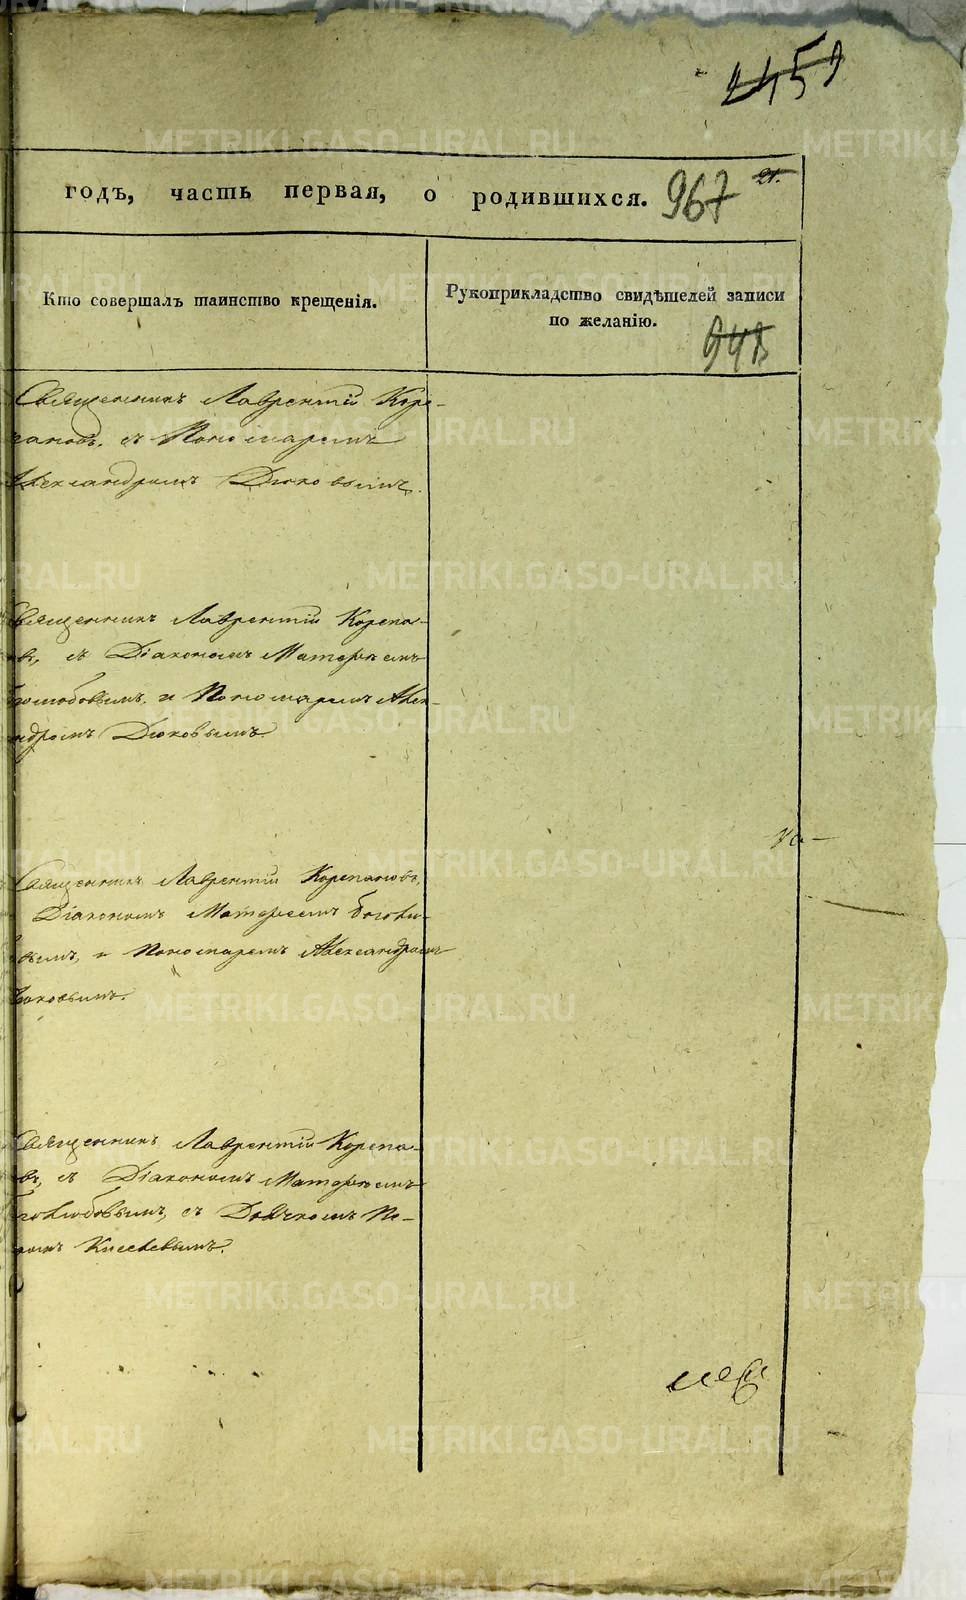 2459
годъ, часть первая, о родившихся. 967 21.
Кто совершалъ таинство крещенія.
Рукоприкладство свидѣтелей записи
по желанію.
Священникъ Лаврентій Коре-
пановъ, съ Пономаремъ
Александромъ Дюковымъ.
Священникъ Лаврентій Корепа-
въ, съ Діакономъ Матѳеемъ
Боголюбовымъ, и Пономаремъ Алек-
ндромъ Дюковымъ.
Священникъ Лаврентій Корепановъ,
Діакономъ Матѳеемъ Боголю-
вымъ, и Пономаремъ Александромъ
Дюковымъ.
Священникъ Лаврентій Корепа-
въ, съ Діакономъ Матѳеемъ
голюбовымъ, съ Дьячкомъ
Киселевымъ.
METRIKI.GASO-URAL.RU